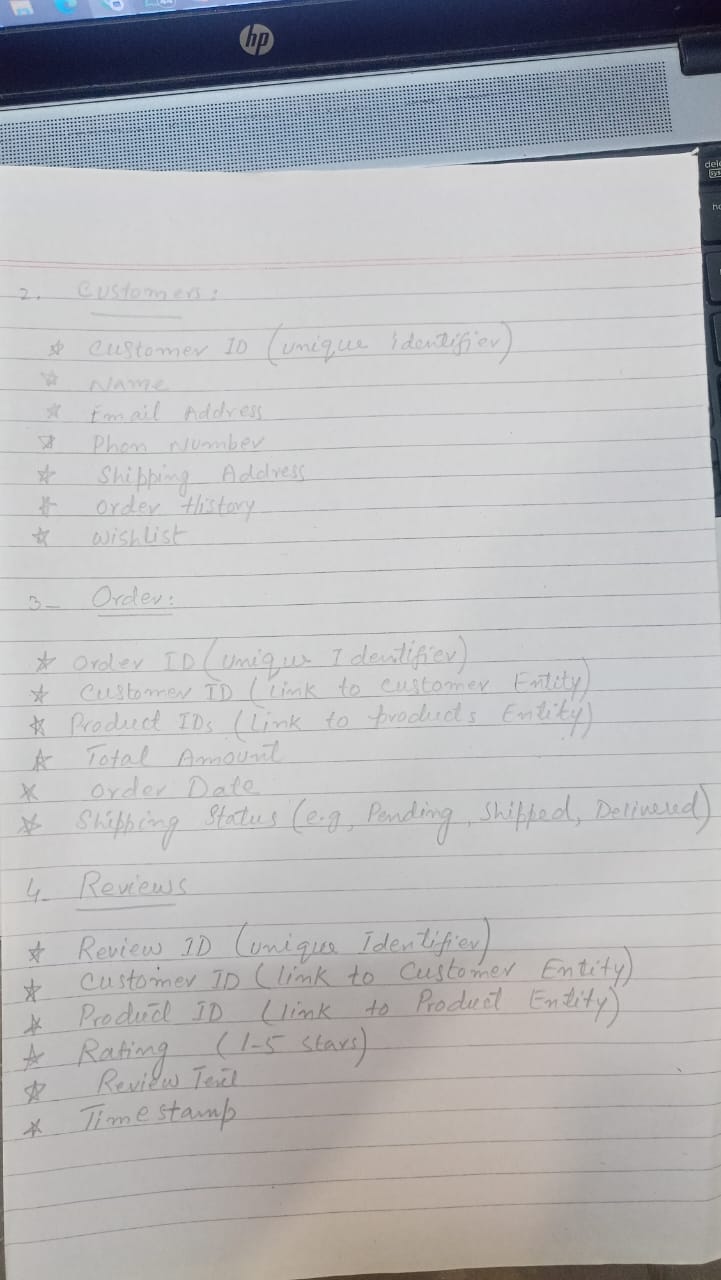 hp
dele
sys
ho
2. Customers:
☆ Customer ID (unique identifier)
☆ Name
☆ Email Address
☆ Phon Number
☆ Shipping Address
☆ Order History
☆ Wishlist
3- Order:
☆ Order ID (Unique Identifier)
☆ Customer ID (link to customer Entity)
☆ Product IDs (Link to products Entity)
☆ Total Amount
☆ Order Date
☆ Shipping Status (e.g, Pending, Shipped, Delivered)
4- Reviews
☆ Review ID (unique Identifier)
☆ Customer ID (link to Customer Entity)
☆ Product ID (link to Product Entity)
☆ Rating (1-5 stars)
☆ Review Text
☆ Timestamp